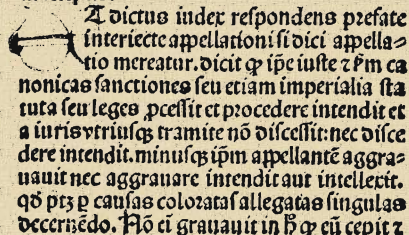 A dictus iudex respondens prefate
interiecte appellationi si dici appella⸗
tio mereatur. dicit ꝙ ip̄e iuste ⁊ ẜm ca
nonicas sanctiones seu etiam imperialia sta
tuta seu leges ꝓcessit et procedere intendit et
a iuris vtriusqꝫ tramite nō discessit: nec disce
dere intendit. minusqꝫ ip̄m appellantē aggra⸗
uauit nec aggrauare intendit aut intellexit.
qd̄ ptꝫ ꝑ causas coloratas allegatas singulas
decernēdo. Nō em̄ grauauit in hͦ ꝙ eū cepit ⁊